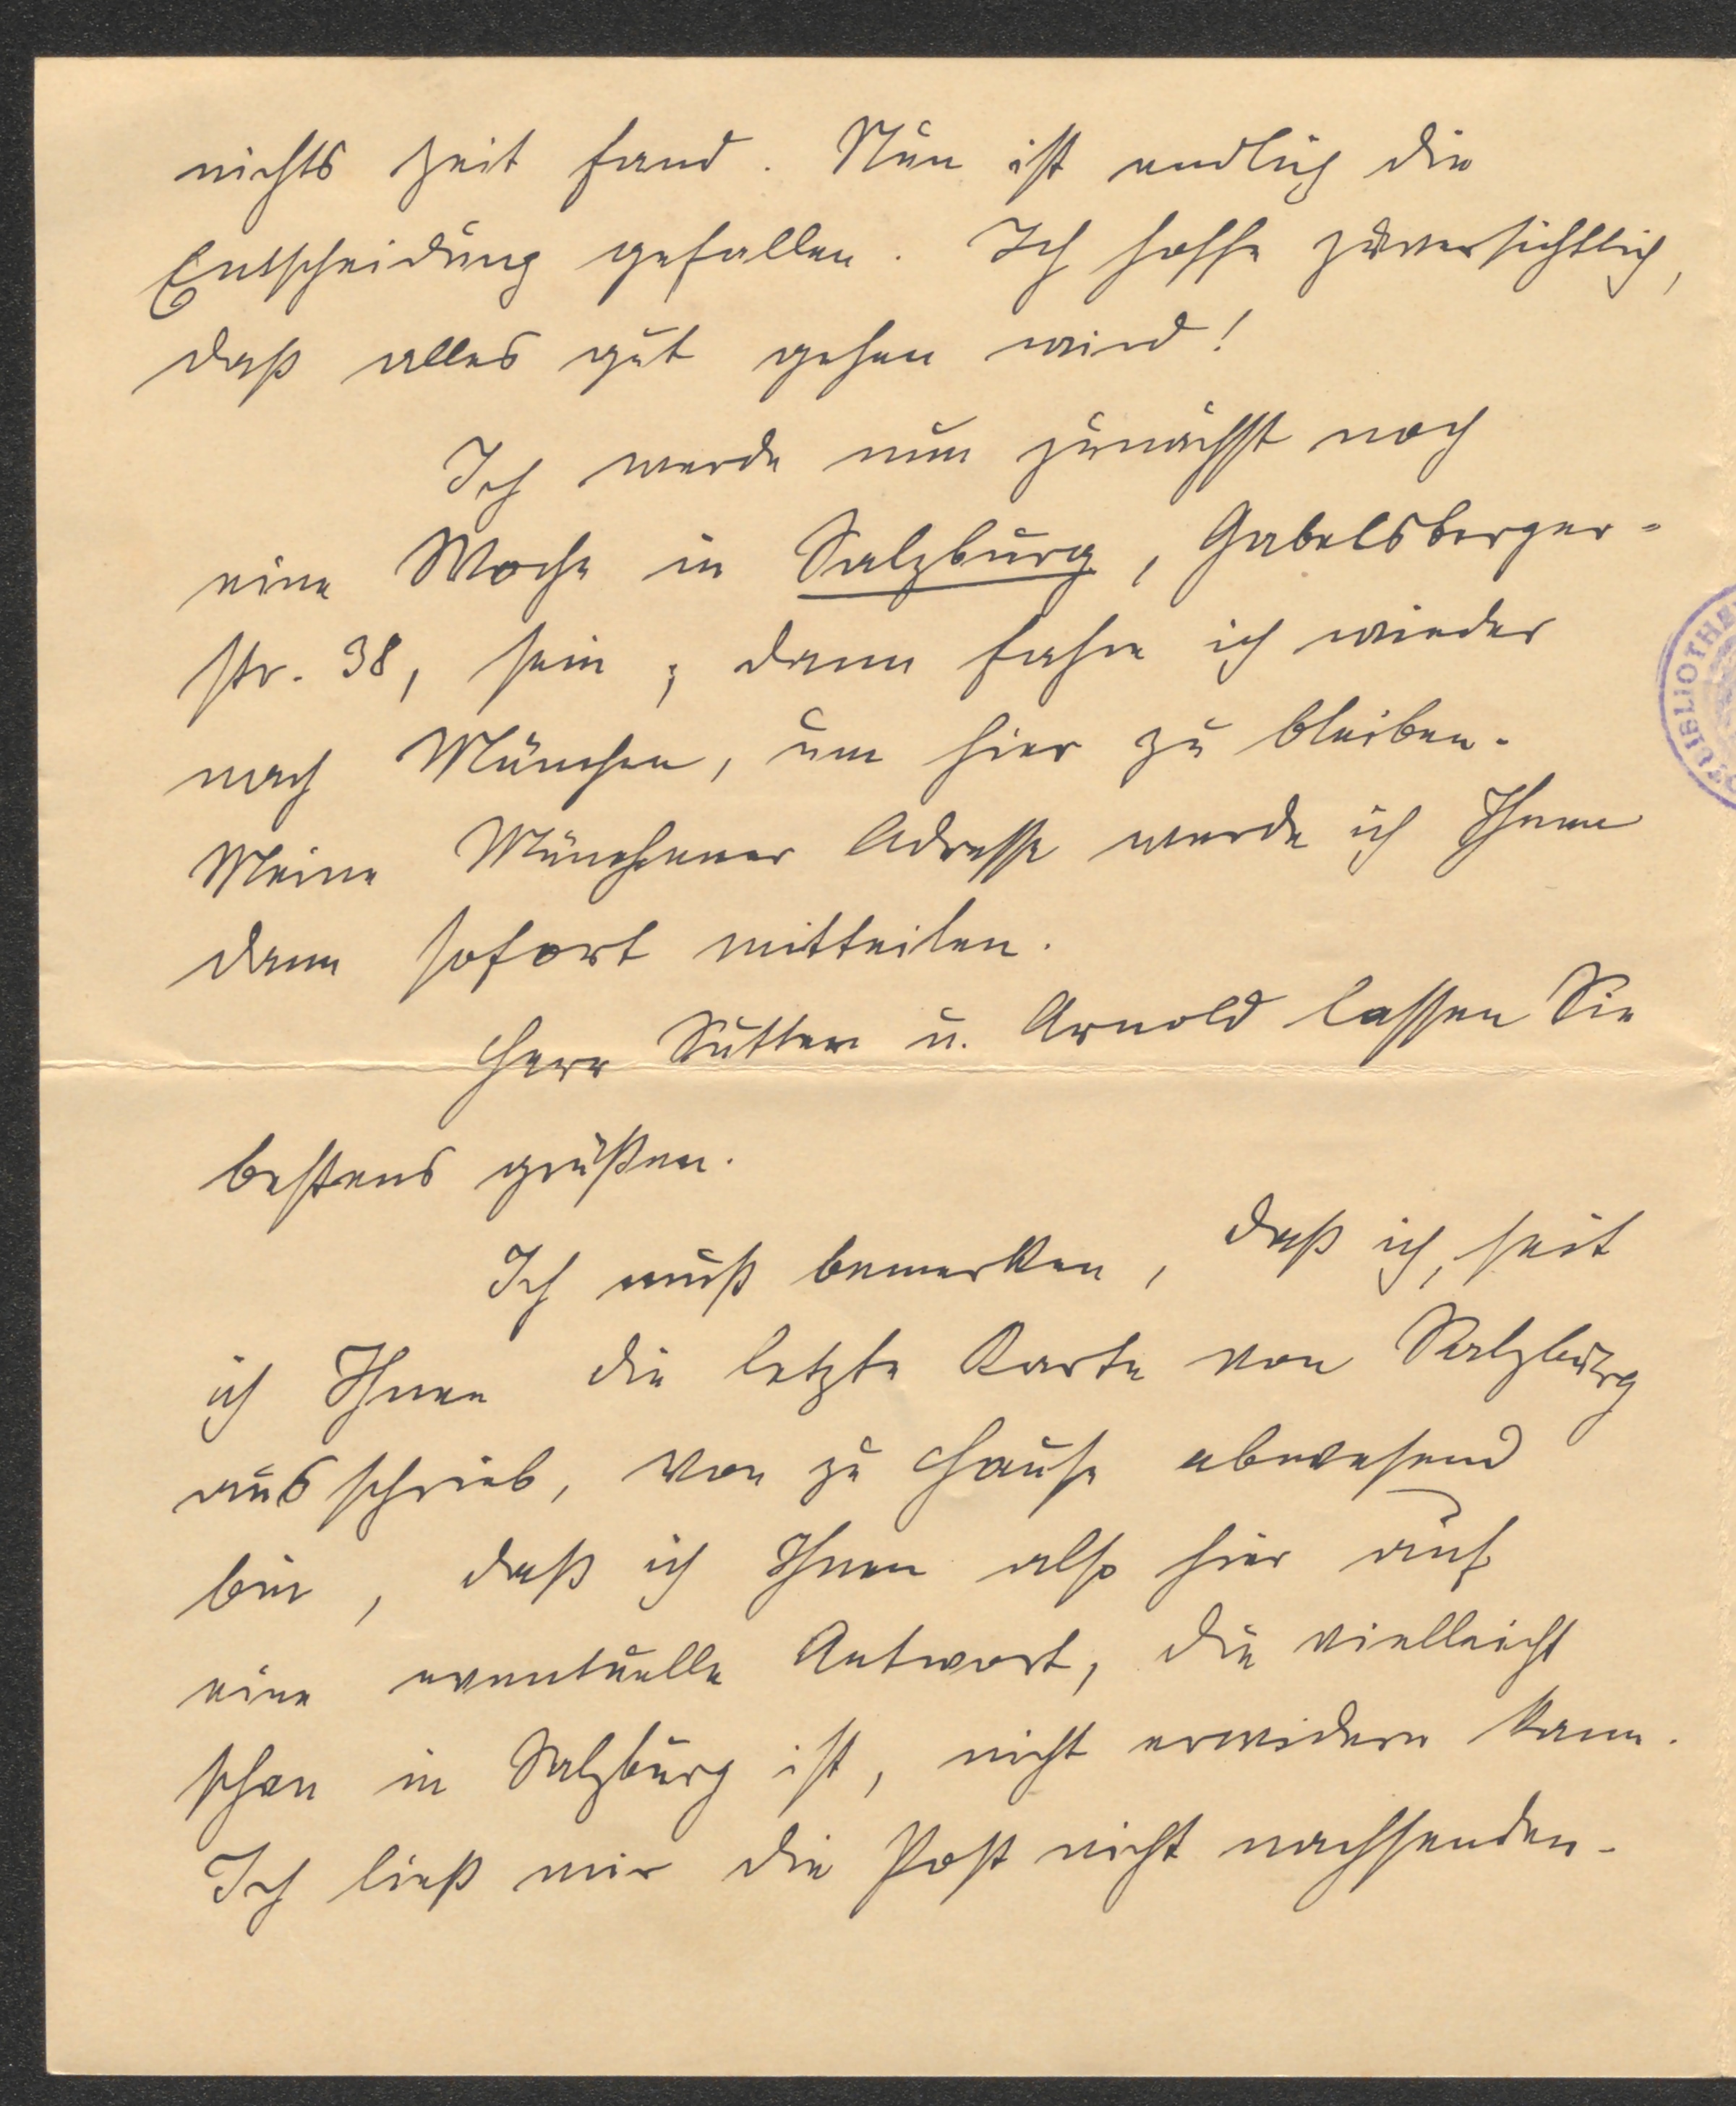 nichts Zeit fand. Nun ist endlich die
Entscheidung gefallen. Ich hoffe zuversichtlich,
daß alles gut gehen wird!
Ich werde nun zunächst noch
eine Woche in Salzburg, Gabelsberger-
str. 38, sein; dann fahre ich wieder
nach München, um hier zu bleiben.
Meine Münchener Adresse werde ich Ihnen
dann sofort mitteilen.
Herr Sutter u. Arnold lassen Sie
bestens grüßen.
Ich muß bemerken, daß ich, seit
ich Ihnen die letzte Karte von Salzburg
aus schrieb, von zu Hause abwesend
bin, daß ich Ihnen also hier auf
eine eventuelle Antwort, die vielleicht
schon in Salzburg ist, nicht erwidern kann.
Ich ließ mir die Post nicht nachsenden.